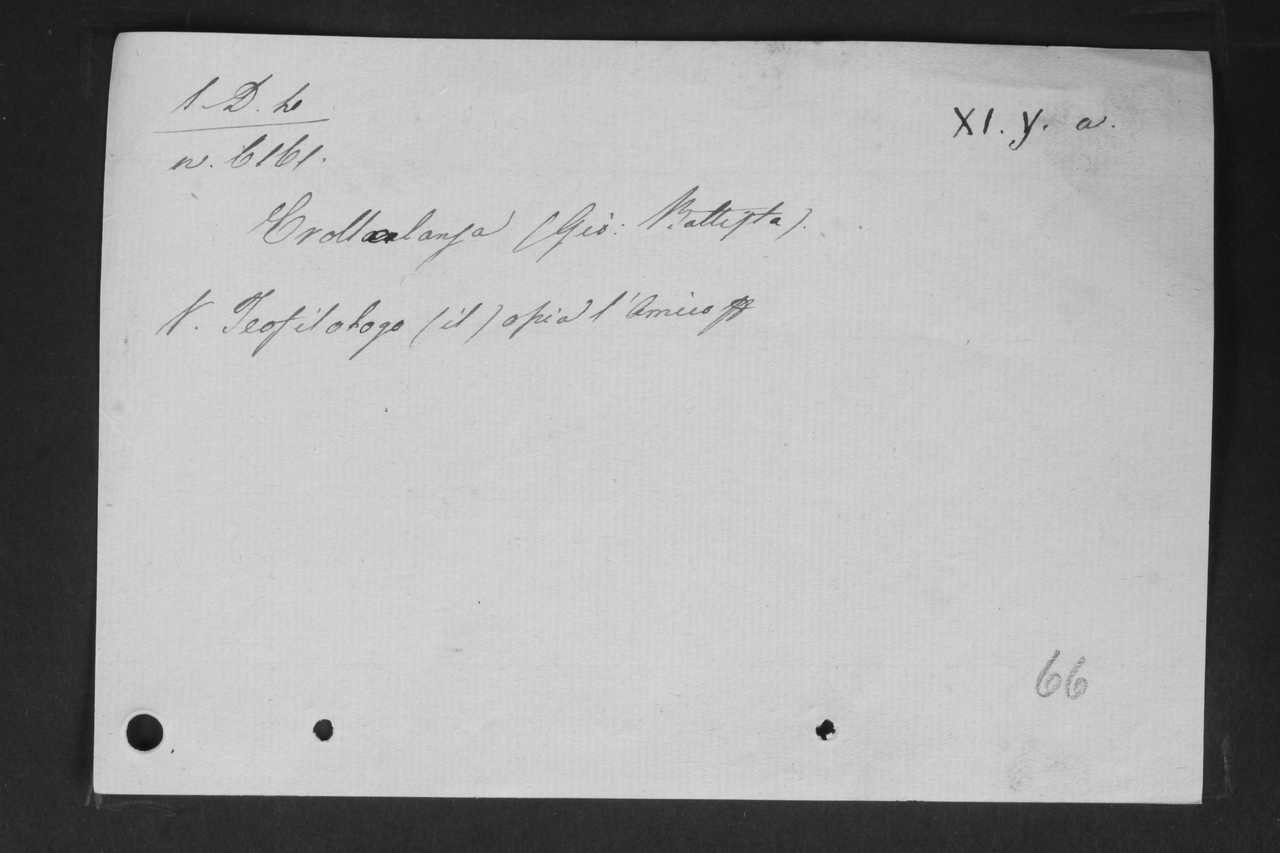 1. D. h
XI. y. a.
n. 6161.
Crollalanza (Gio: Battista).
V. Teofilologo (il) ossia l'Amico
66